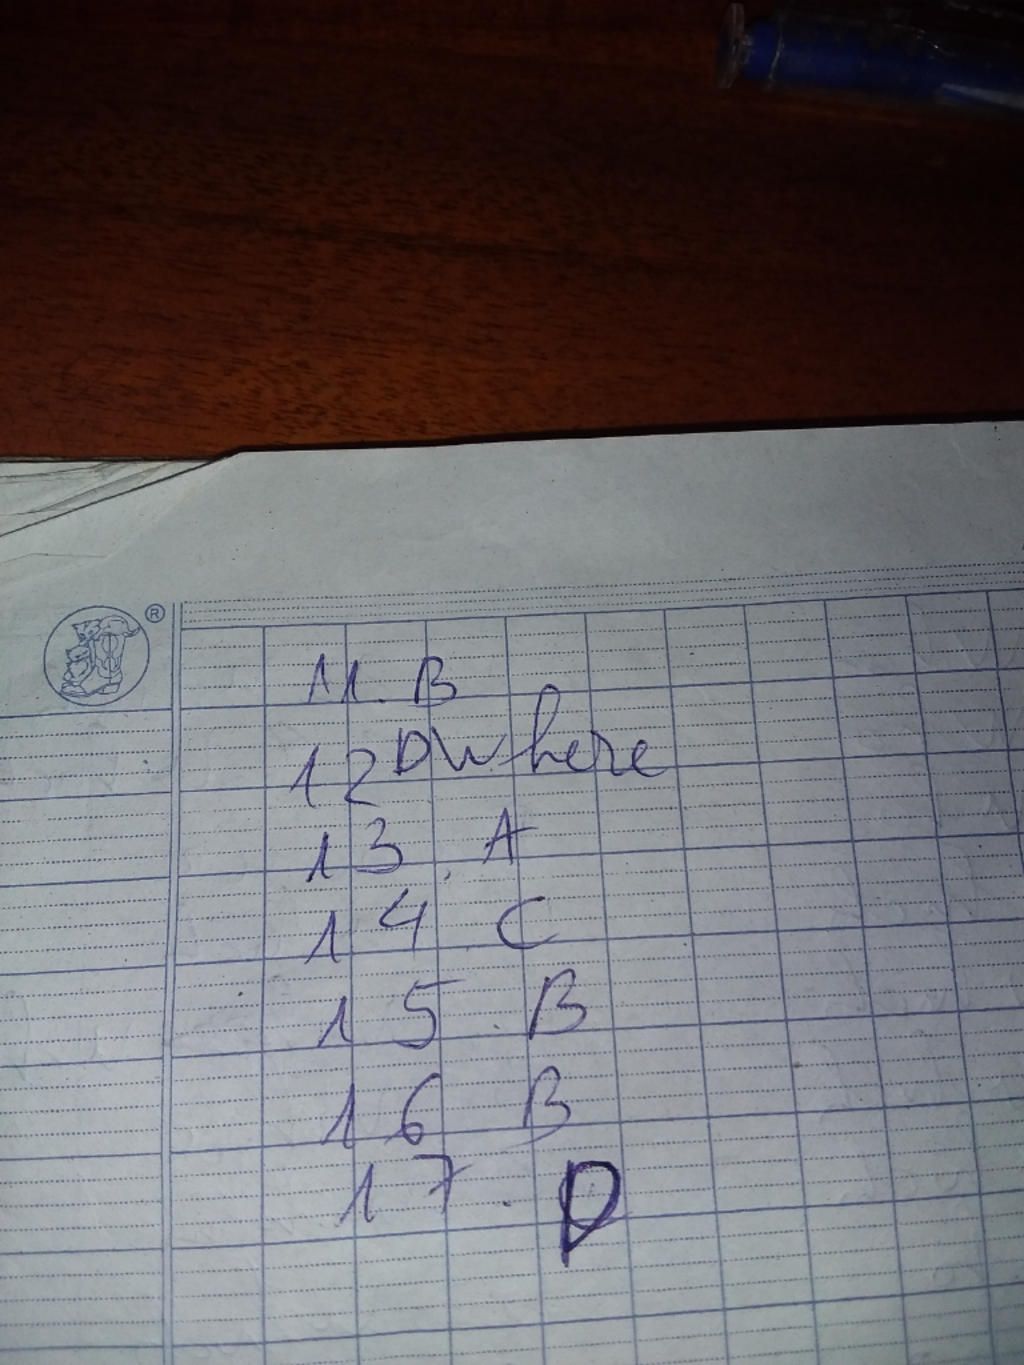 ®
11. B
12 D Where
13. A
14 C
15. B
16 B
17. D